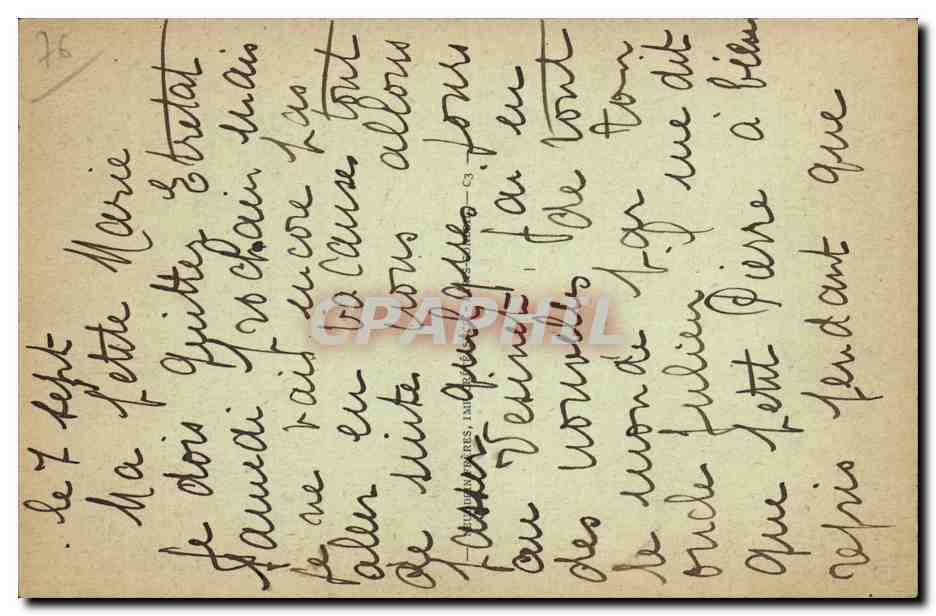 76
le 7 sept
Ma petite Marie
Je dois quitter Etretat
Samedi prochain mais
je ne vais encore pas
aller en vacances tout
de suite nous allons
passer quelques jours
au Vésinet j'ai eu
des nouvelles de tout
le monde par ton
oncle Julien qui me dit
que petit Pierre a bien
repris pendant que
— NEURDEIN FRÈRES, IMP. — C3 —
CPAPHIL